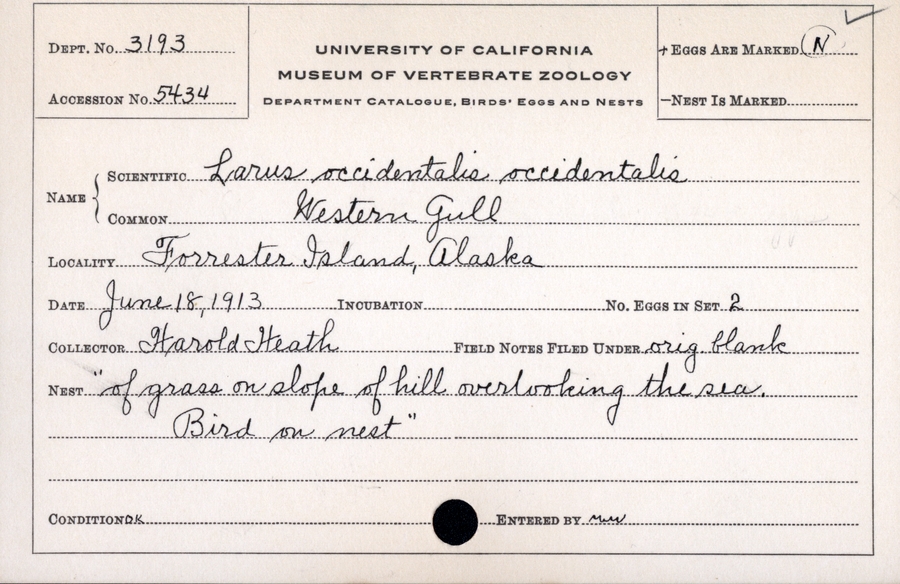 Dept. No. 3193
Accession No. 5434
UNIVERSITY OF CALIFORNIA
MUSEUM OF VERTEBRATE ZOOLOGY
Department Catalogue, Birds' Eggs and Nests
+ Eggs Are Marked N
—Nest Is Marked
Name
Scientific Larus occidentalis occidentalis
Common Western Gull
Locality Forrester Island, Alaska
Date June 18, 1913 Incubation No. Eggs in Set 2
Collector Harold Heath Field Notes Filed Under orig. blank
Nest "of grass on slope of hill overlooking the sea.
Bird on nest"
Condition OK Entered by